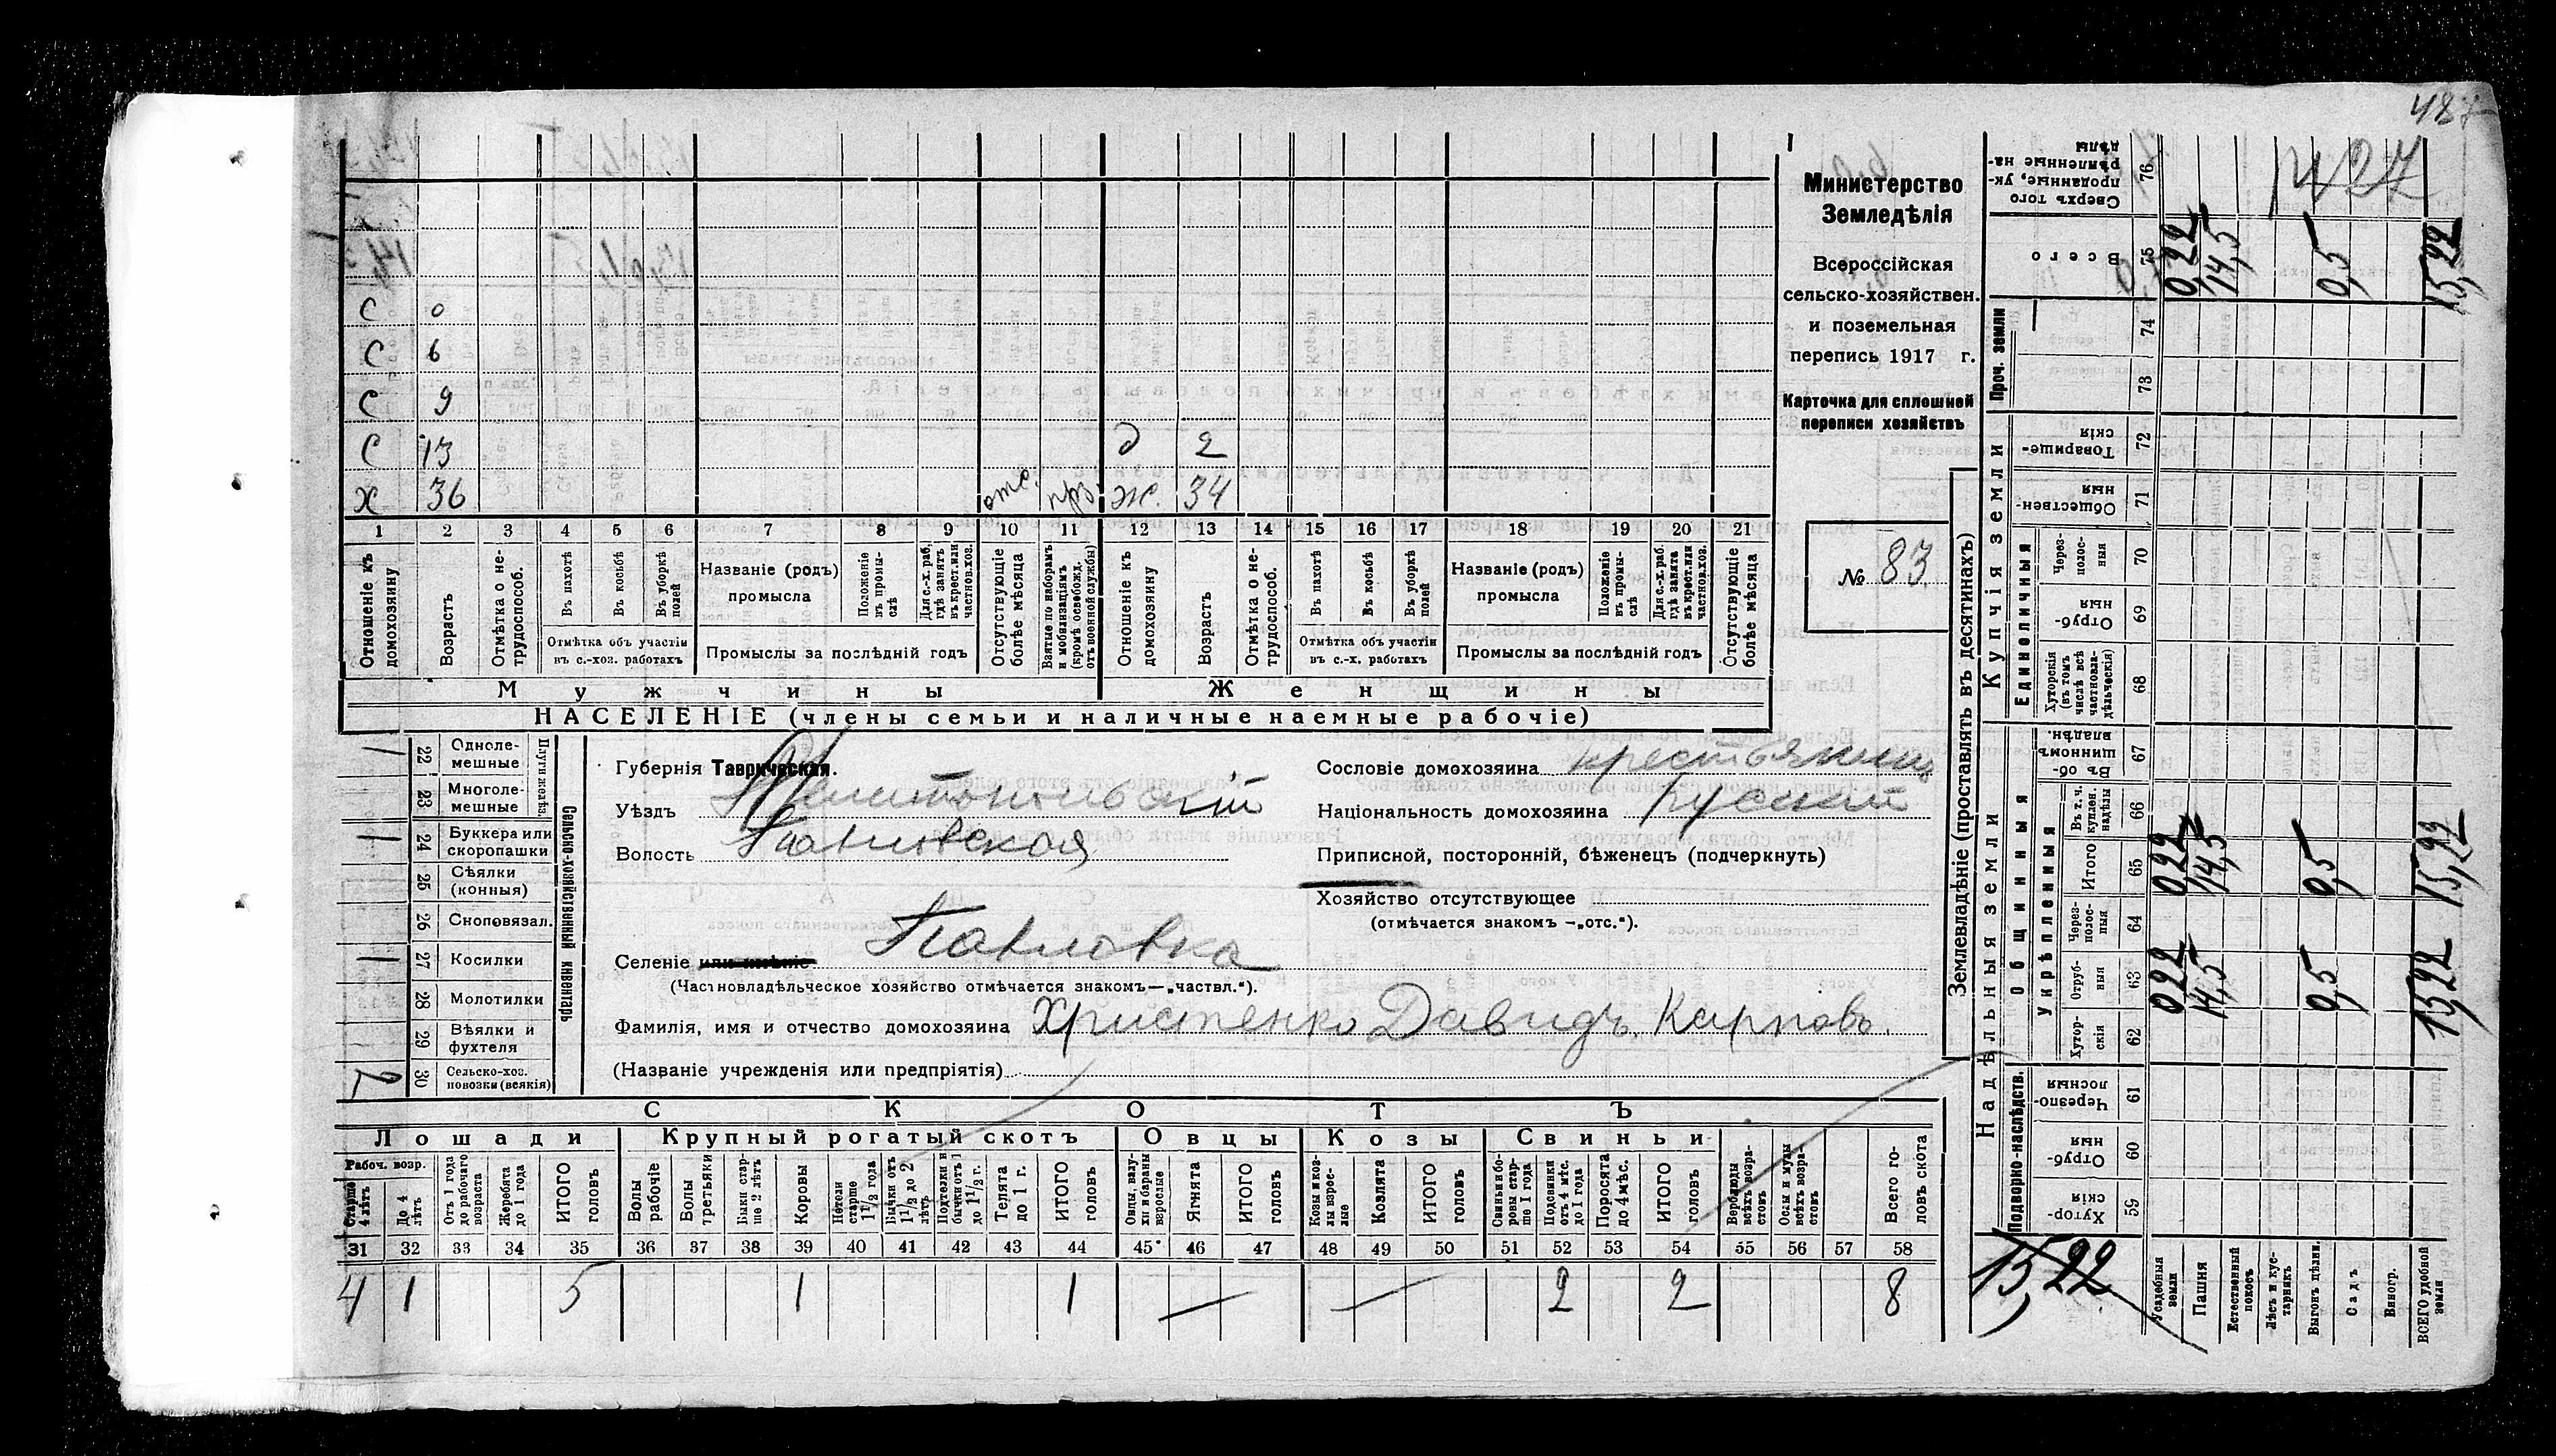 487
Министерство
Земледѣлія
Всероссійская
сельско-хозяйствен.
и поземельная
перепись 1917 г.
Карточка для сплошной
переписи хозяйствъ
№ 83
С 0
С 6
С 9
С 13 д 2
Х 36 отс. прз. ж. 34
1 2 3 4 5 6 7 8 9 10 11 12 13 14 15 16 17 18 19 20 21
Отношеніе къ домохозяину
Возрастъ
Отмѣтка о нетрудоспособ.
Въ пахотѣ
Въ косьбѣ
Въ уборкѣ полей
Отмѣтка объ участіи
въ с.-хоз. работахъ
Названіе (родъ)
промысла
Положеніе въ промыслѣ
Для с.-х. раб. гдѣ занятъ въ крест. или частнов. хоз.
Промыслы за послѣдній годъ
Отсутствующіе болѣе мѣсяца
Взятые по наборамъ и мобилизаціямъ (кромѣ освобожд. отъ военной службы)
Отношеніе къ домохозяину
Возрастъ
Отмѣтка о нетрудоспособ.
Въ пахотѣ
Въ косьбѣ
Въ уборкѣ полей
Отмѣтка объ участіи
въ с.-х. работахъ
Названіе (родъ)
промысла
Положеніе въ промыслѣ
Для с.-х. раб. гдѣ занята въ крест. или частнов. хоз.
Промыслы за послѣдній годъ
Отсутствующіе болѣе мѣсяца
Мужчины Женщины
НАСЕЛЕНІЕ (члены семьи и наличные наемные рабочіе)
Сельско-хозяйственный инвентарь
Плуги желѣз.
1 22 Однолемешные
23 Многолемешные
1 24 Буккера или скоропашки
25 Сѣялки (конныя)
26 Сноповязал.
1 27 Косилки
28 Молотилки
29 Вѣялки и фухтеля
2 30 Сельско-хоз. повозки (всякія)
Губернія Таврическая.
Уѣздъ Мелитопольскій
Волость Павловская
Селеніе или имѣніе Павловка
(Частновладѣльческое хозяйство отмѣчается знакомъ—„частвл.“).
Фамилія, имя и отчество домохозяина Христенко Давидъ Карповъ.
(Названіе учрежденія или предпріятія)
Сословіе домохозяина крестьянинъ
Національность домохозяина русский
Приписной, посторонній, бѣженецъ (подчеркнуть)
Хозяйство отсутствующее
(отмѣчается знакомъ —„отс.“).
СКОТЪ
Лошади Крупный рогатый скотъ Овцы Козы Свиньи
Рабоч. возр.
Старше 4 лѣтъ
До 4 лѣтъ
Отъ 1 года до рабочаго возраста
Жеребята до 1 года
ИТОГО головъ
Волы рабочіе
Волы третьяки
Быки старше 2 лѣтъ
Коровы
Нетели старше 1 1/2 года
Бычки отъ 1 1/2 до 2 лѣтъ
Подтелки и бычки отъ 1 до 1 1/2 г.
Телята до 1 г.
ИТОГО головъ
Овцы, валухи и бараны взрослые
Ягнята
ИТОГО головъ
Козы и козлы взрослые
Козлята
ИТОГО головъ
Свиньи боровы старше 1 года
Подсвинки отъ 4 мѣс. до 1 года
Поросята до 4 мѣс.
ИТОГО головъ
Верблюды всѣхъ возрастовъ
Ослы и мулы всѣхъ возрастовъ
Всего головъ скота
31 32 33 34 35 36 37 38 39 40 41 42 43 44 45 46 47 48 49 50 51 52 53 54 55 56 57 58
4 1 5 1 1 — — 2 2 8
Землевладѣніе (проставлять въ десятинахъ)
Сверхъ того проданные, укрѣпленные надѣлы 76
Всего 75 0,22 14,5 0,5 15,22
Проч. земли
74
73
Купчія земли
Товарищескія 72
Общественныя 71
Единоличныя
Черезполосныя 70
Отрубныя 69
Хуторскія (въ томъ числѣ всѣ частновладѣльческія) 68
Надѣльныя земли
Общинныя
Въ общинномъ владѣн. 67
Укрѣпленныя
Въ т. ч. куплен. надѣлы 66
Итого 65 0,22 14,5 0,5 15,22
Черезполосныя 64
Отрубныя 63 022 14,5 0,5 15,22
Хуторскія 62
Подворно-наслѣдств.
Черезполосныя 61
Отрубныя 60
Хуторскія 59
15,22
Усадебныя земли
Пашня
Естественный покосъ
Лѣсъ и кустарникъ
Выгонъ, цѣлин.
Садъ
Виногр.
ВСЕГО удобной земли